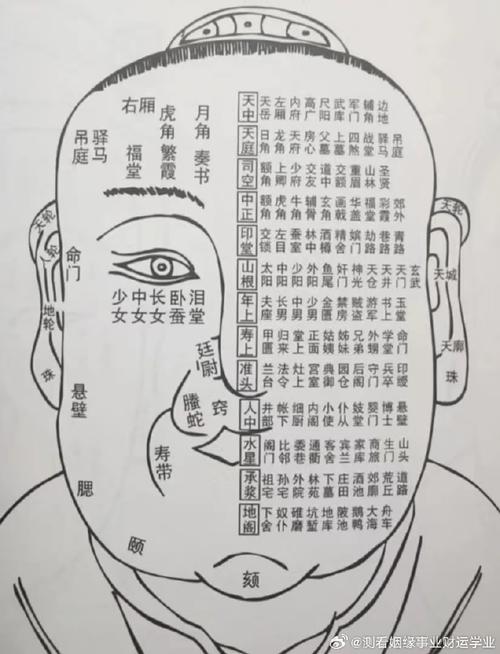 右厢
虎角
月角
吊庭
驿马
福堂
繁霞
奏书
天轮
轮
地轮
珠
命门
少女 中女 长女 卧蚕 泪堂
廷尉
螣蛇
窍
悬壁
寿带
腮
颐
颏
天中 天岳 左厢 内府 高广 尺阳 武库 军门 辅角 边地
天庭 日角 龙角 天府 房心 父墓 上墓 四煞 战堂 驿马 吊庭
司空 额角 上卿 少府 交友 道中 交额 重眉 山林 圣贤
中正 额角 虎角 牛角 辅骨 玄角 画戟 华盖 福堂 彩霞 郊外
印堂 交锁 左目 蚕室 林中 酒樽 精舍 嫔门 劫路 巷路 青路
山根 太阳 中阳 少阳 外阳 鱼尾 奸门 神光 天仓 天井 天门 玄武
年上 夫座 长男 中男 少男 金匮 禁房 贼盗 游军 书上 玉堂
寿上 甲匮 归来 堂上 正面 姑姨 姊妹 兄弟 外甥 学堂 命门
准头 兰台 法令 灶上 宫室 典御 园仓 后阁 守门 兵卒 印绶
人中 井部 帐下 细厨 内阁 小使 仆从 妓堂 婴门 博士 悬壁
水星 阁门 比邻 委巷 通衢 客舍 宾兰 家库 商旅 生门 山头
承浆 祖宅 孙宅 外院 林苑 下墓 庄田 酒池 郊廓 荒丘 道路
地阁 下舍 奴仆 碓磨 坑堑 地库 陂池 鹅鸭 大海 舟车
天轮
天城
天廓
珠
@测看姻缘事业财运学业